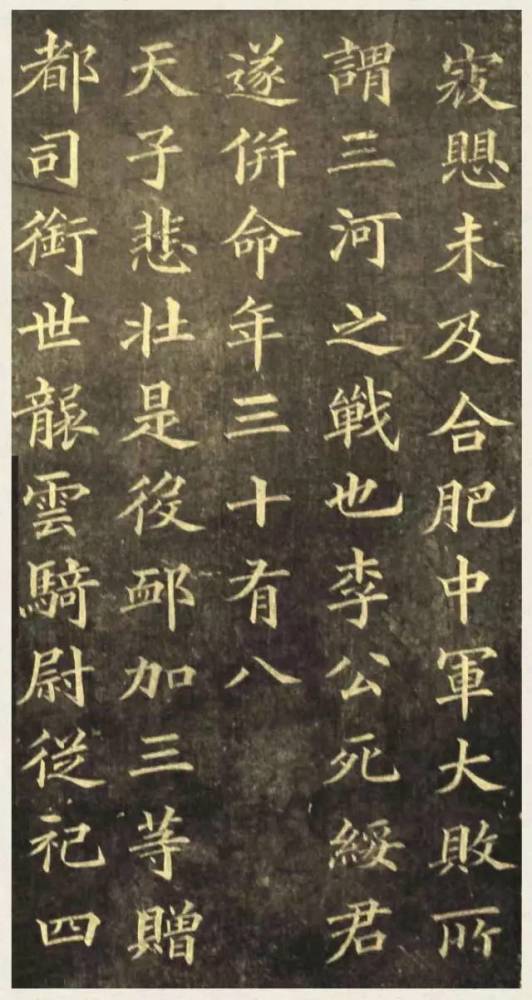 寇愳未及合肥中軍大敗所
謂三河之戰也李公死綏君
遂併命年三十有八
天子悲壯是役卹加三等贈
都司銜世襲雲騎尉從祀四